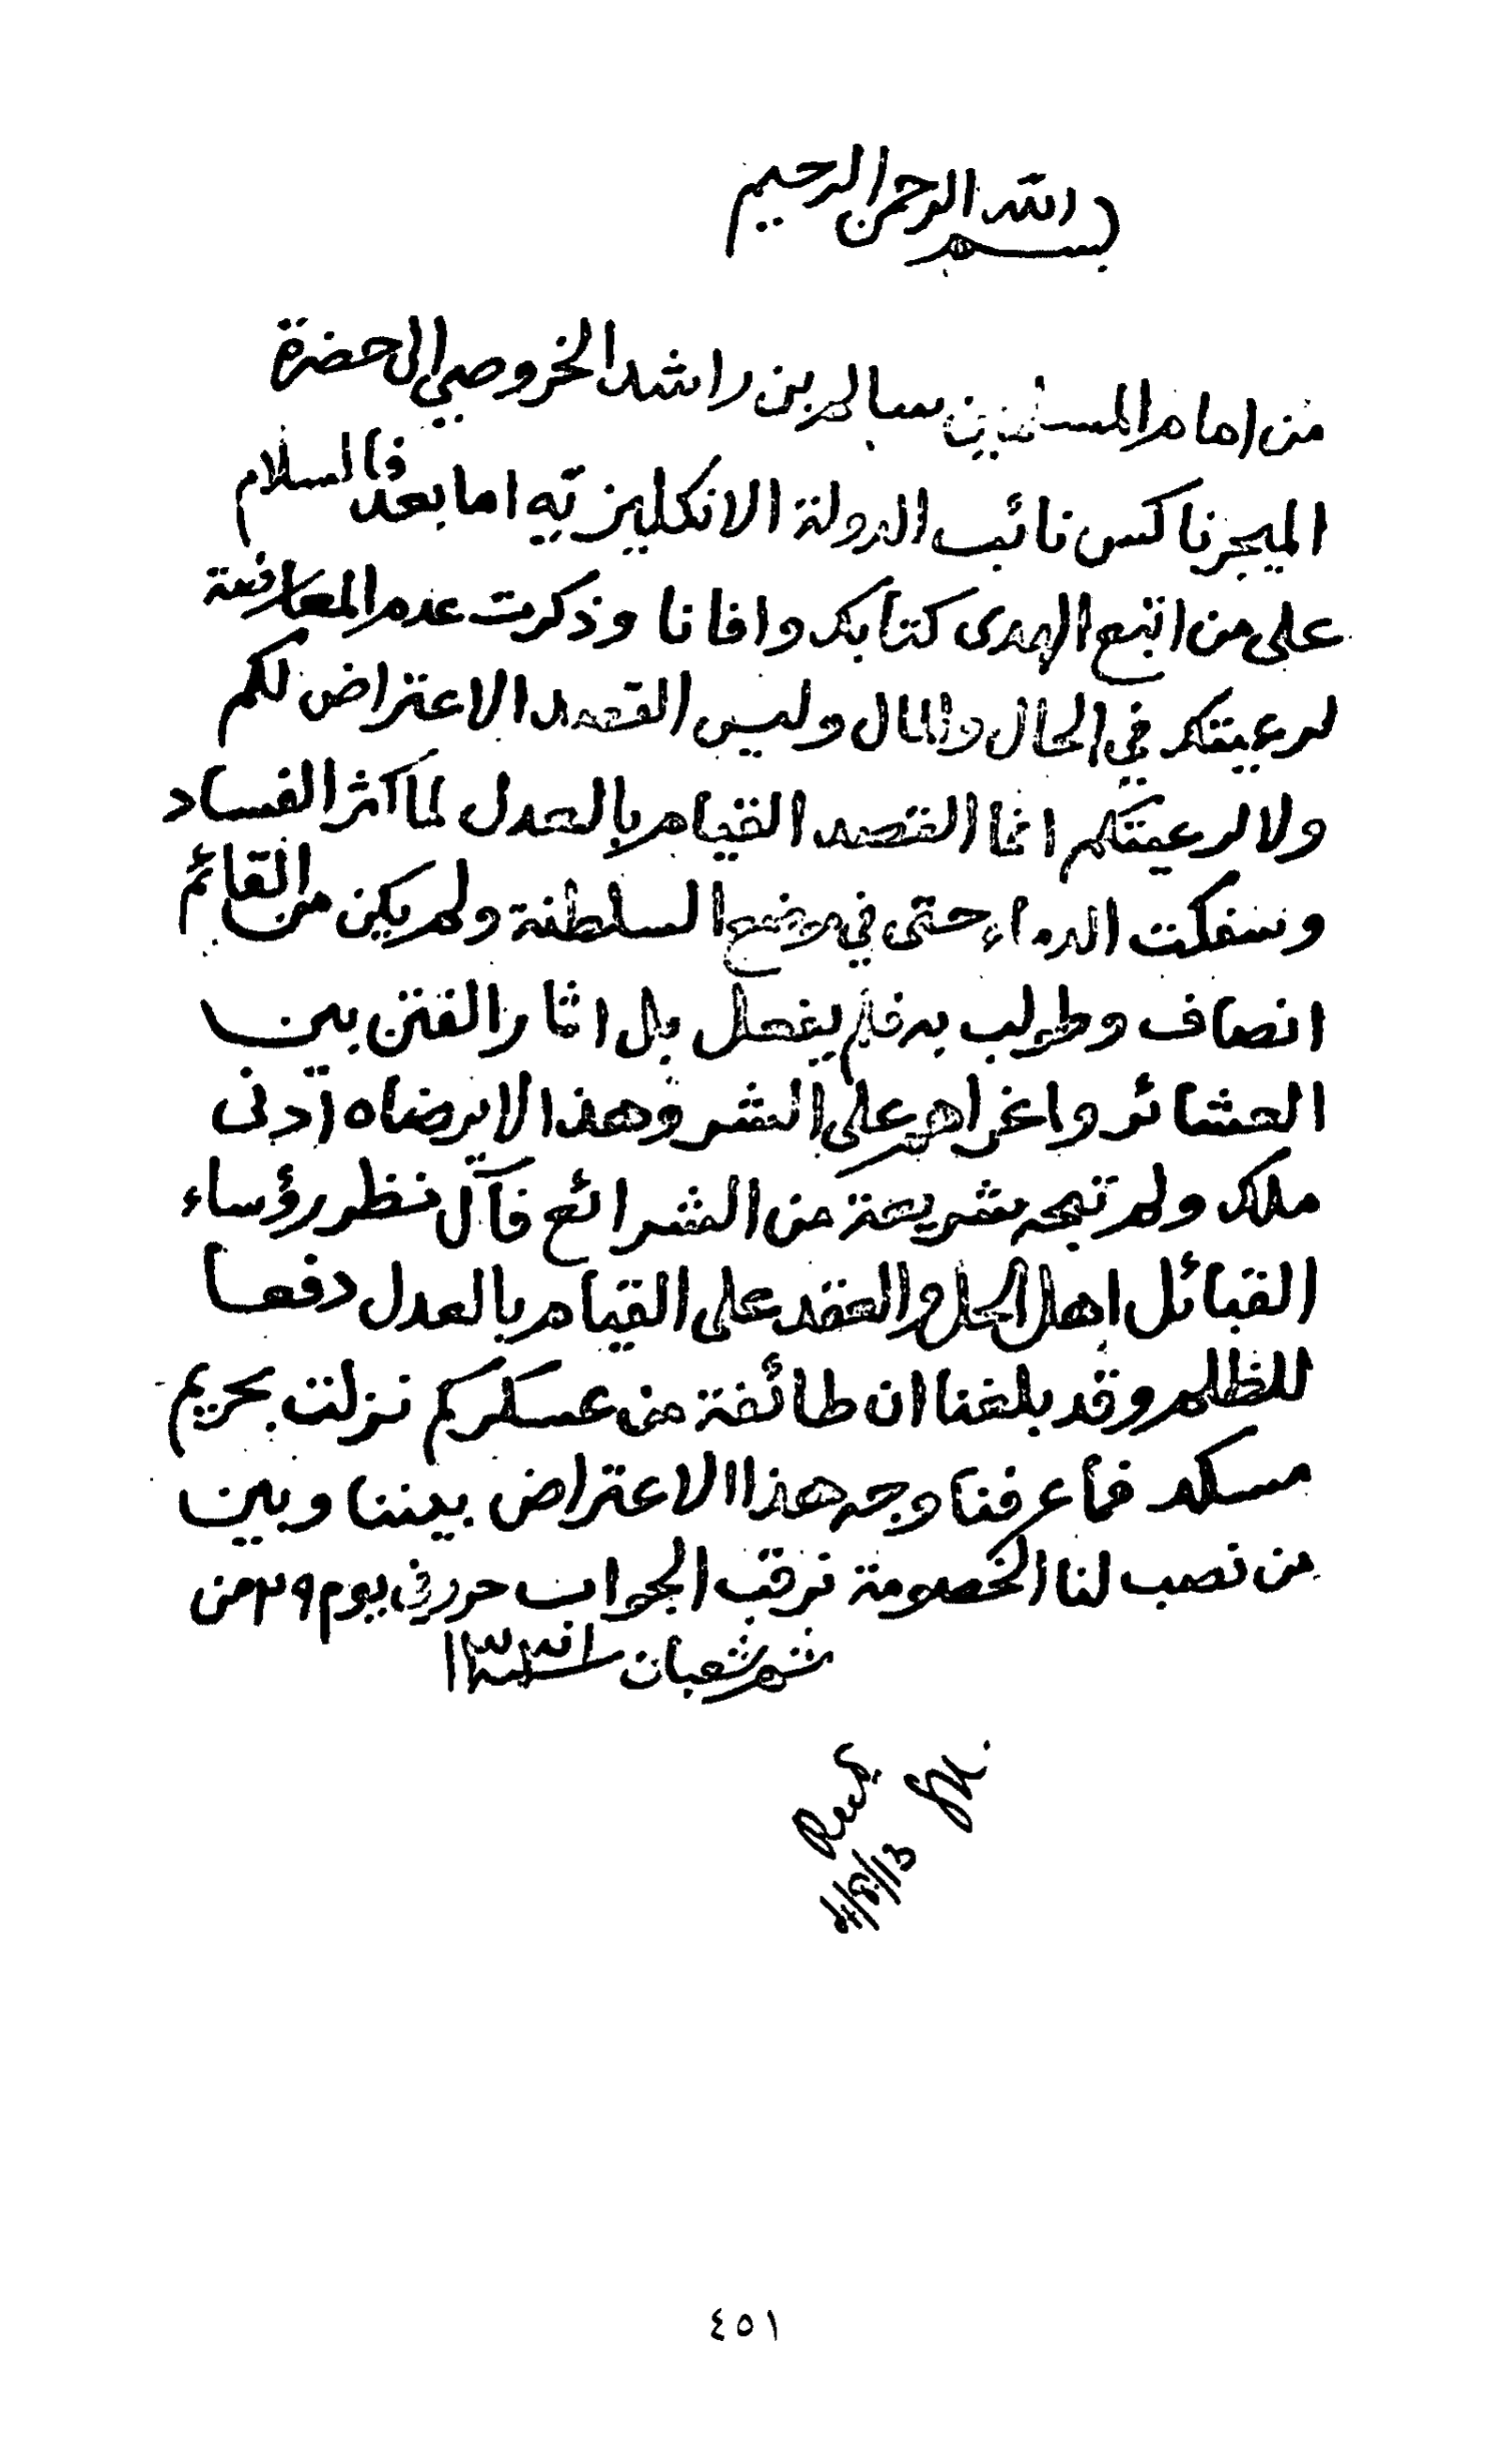 بسم الله الرحمن الرحيم
من امام المسلمين سالم بن راشد الخروصي الى حضرة
الميجر ناكس نائب الدولة الانكليزيه اما بعد فالسلام
على من اتبع الهدى كتابك وافانا وذكرت عدم المعارضة
لرعيتك في الحال والمال وليس القصد الاعتراض لكم
ولا لرعيتكم انما القصد القيام بالعدل لما كثر الفساد
وسفكت الدماء حتى في موضع السلطنة ولم يكن من القائم
انصاف وطولب به فلم يفعل بل اثار الفتن بين
العشائر واغراهم على الشر وهذا لا يرضاه ادنى
ملك ولم تبحه شريعة من الشرائع فآل نظر رؤساء
القبائل اهل الحل والعقد على القيام بالعدل دفعا
للظلم وقد بلغنا ان طائفة من عسكركم نزلت بحريم
مسكد فما عرفنا وجه هذا الاعتراض بيننا وبين
من نصب لنا الخصومة نرقب الجواب حرر في يوم ٢٩ من
شهر شعبان سنة ١٣٣١
Recd.
4/8/13
٤٥١